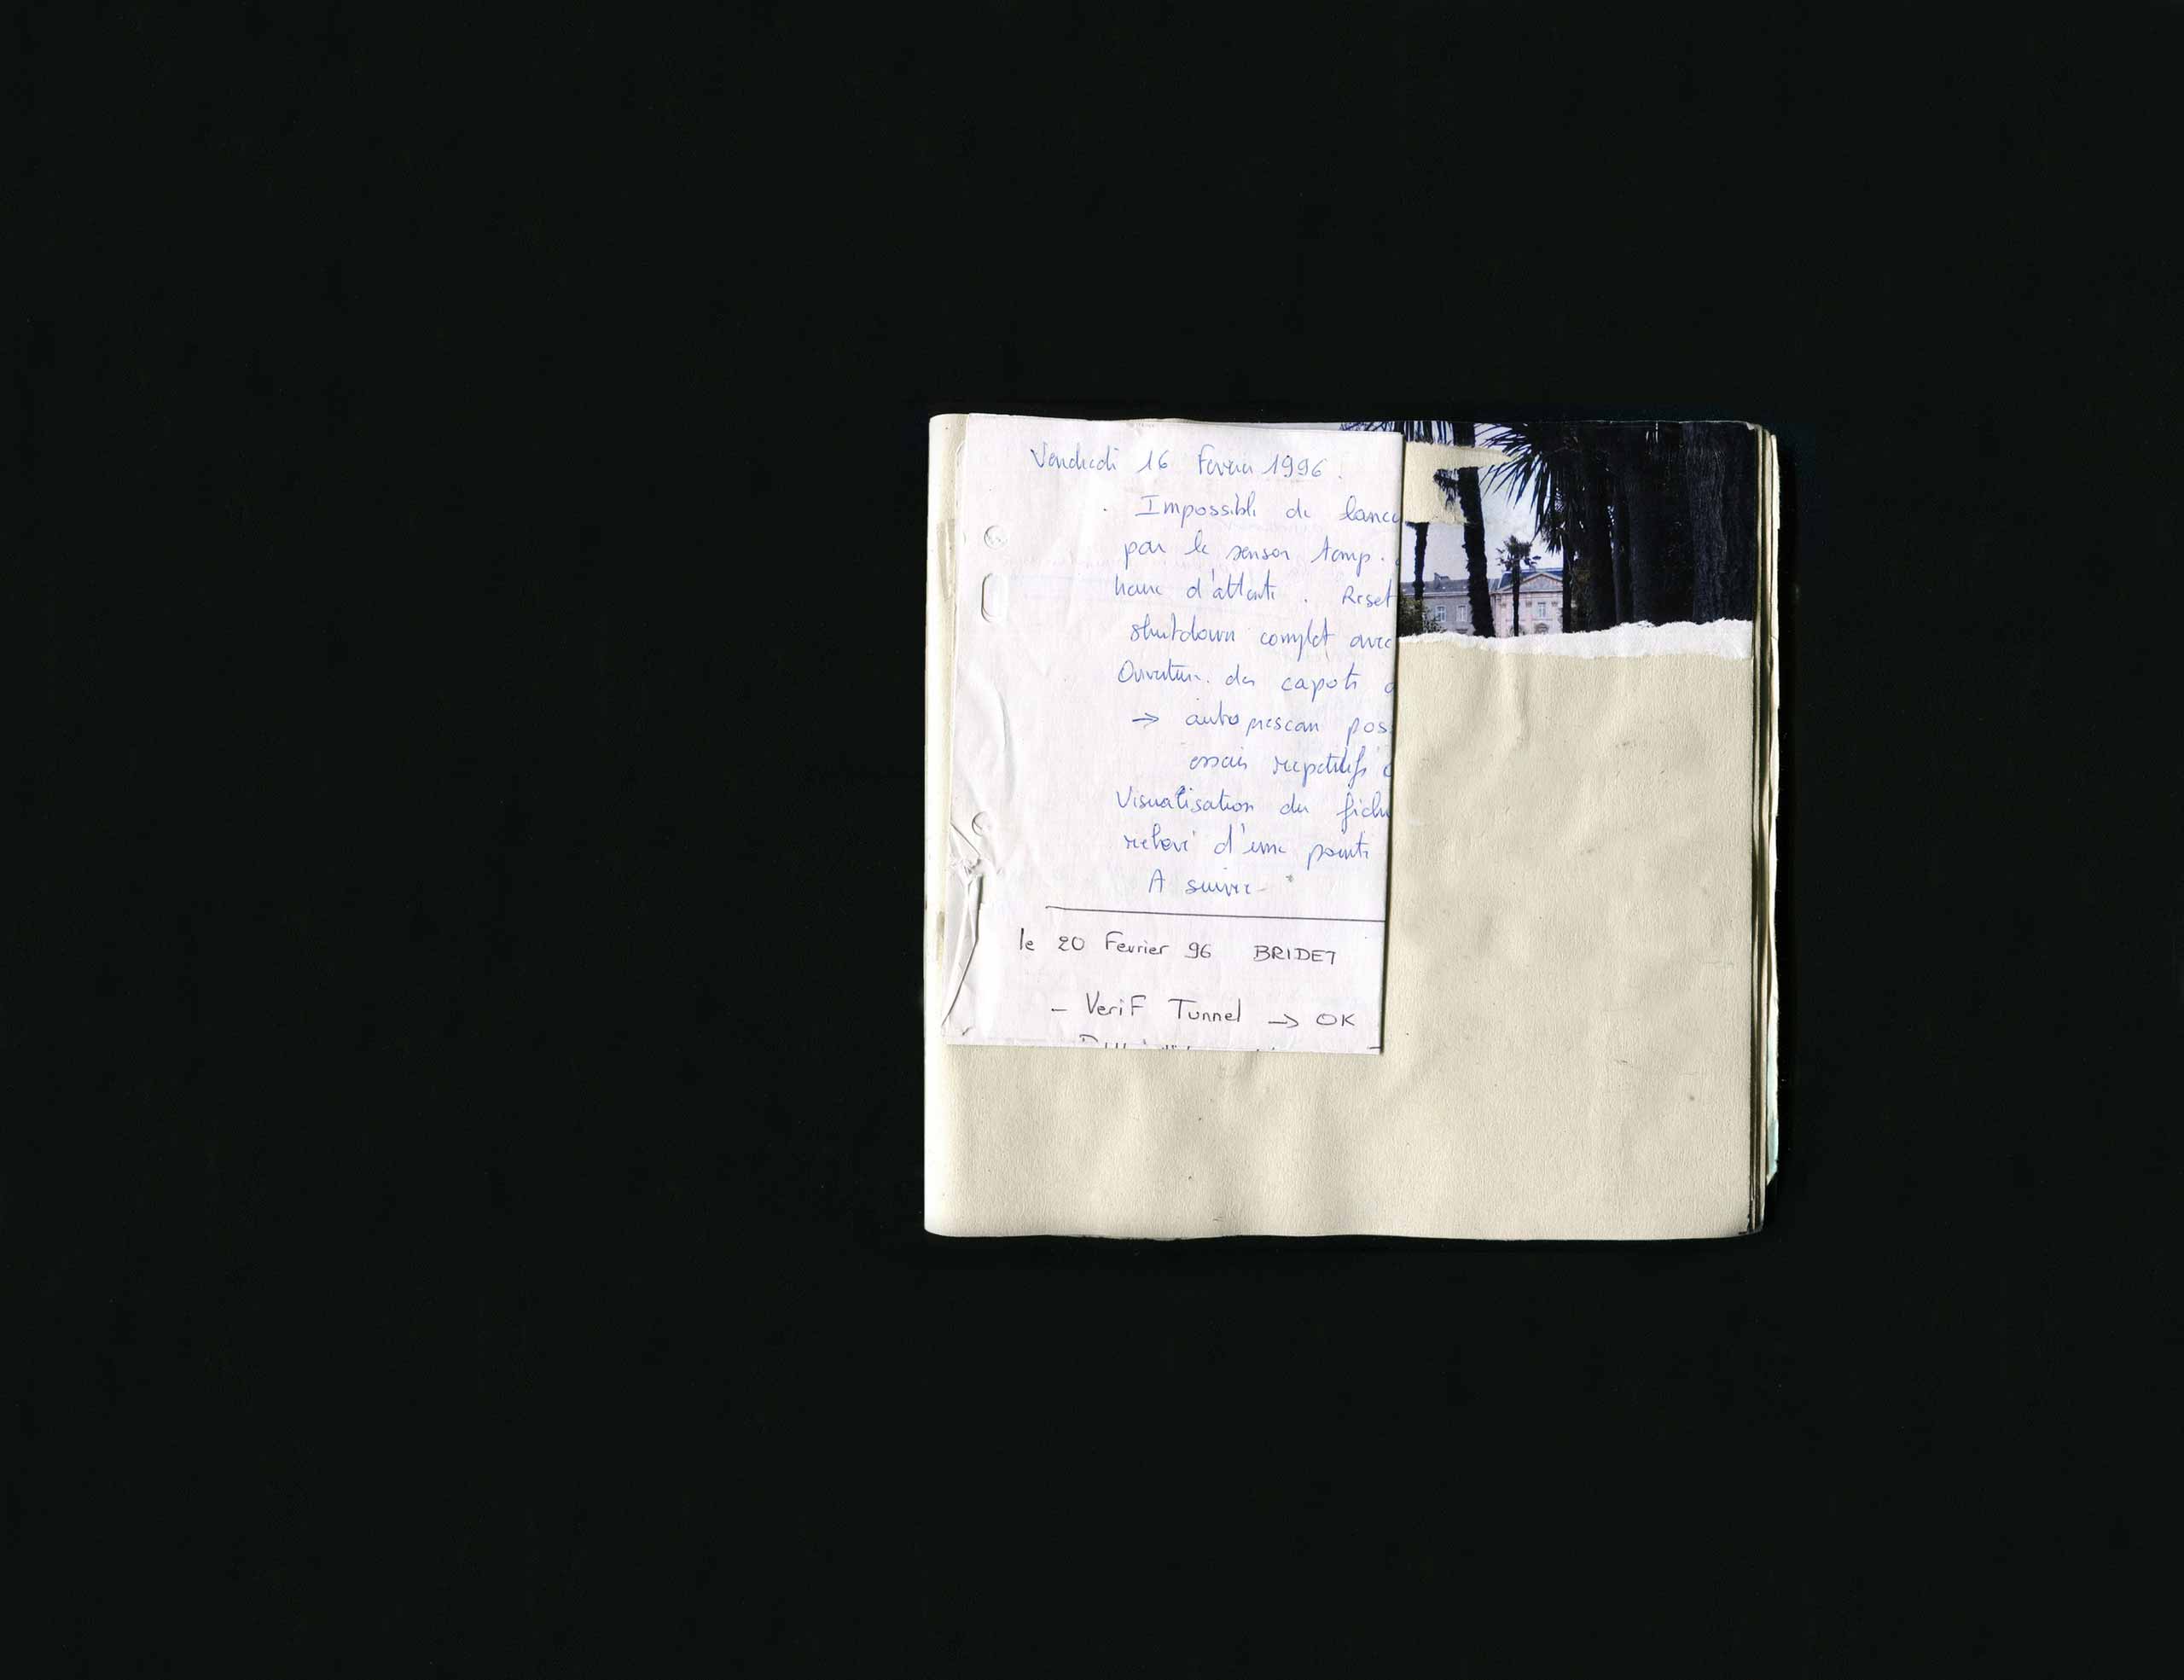 Vendredi 16 Fevrier 1996.
. Impossible de lance
par le sensor temp.
heure d'attente. Reset
shutdown complet avec
Ouverture des capots
→ autoprescan pos
essais repetitifs
Visualisation du fichi
relevé d'une pointe
A suivre
le 20 Fevrier 96 BRIDET
- VeriF Tunnel → OK